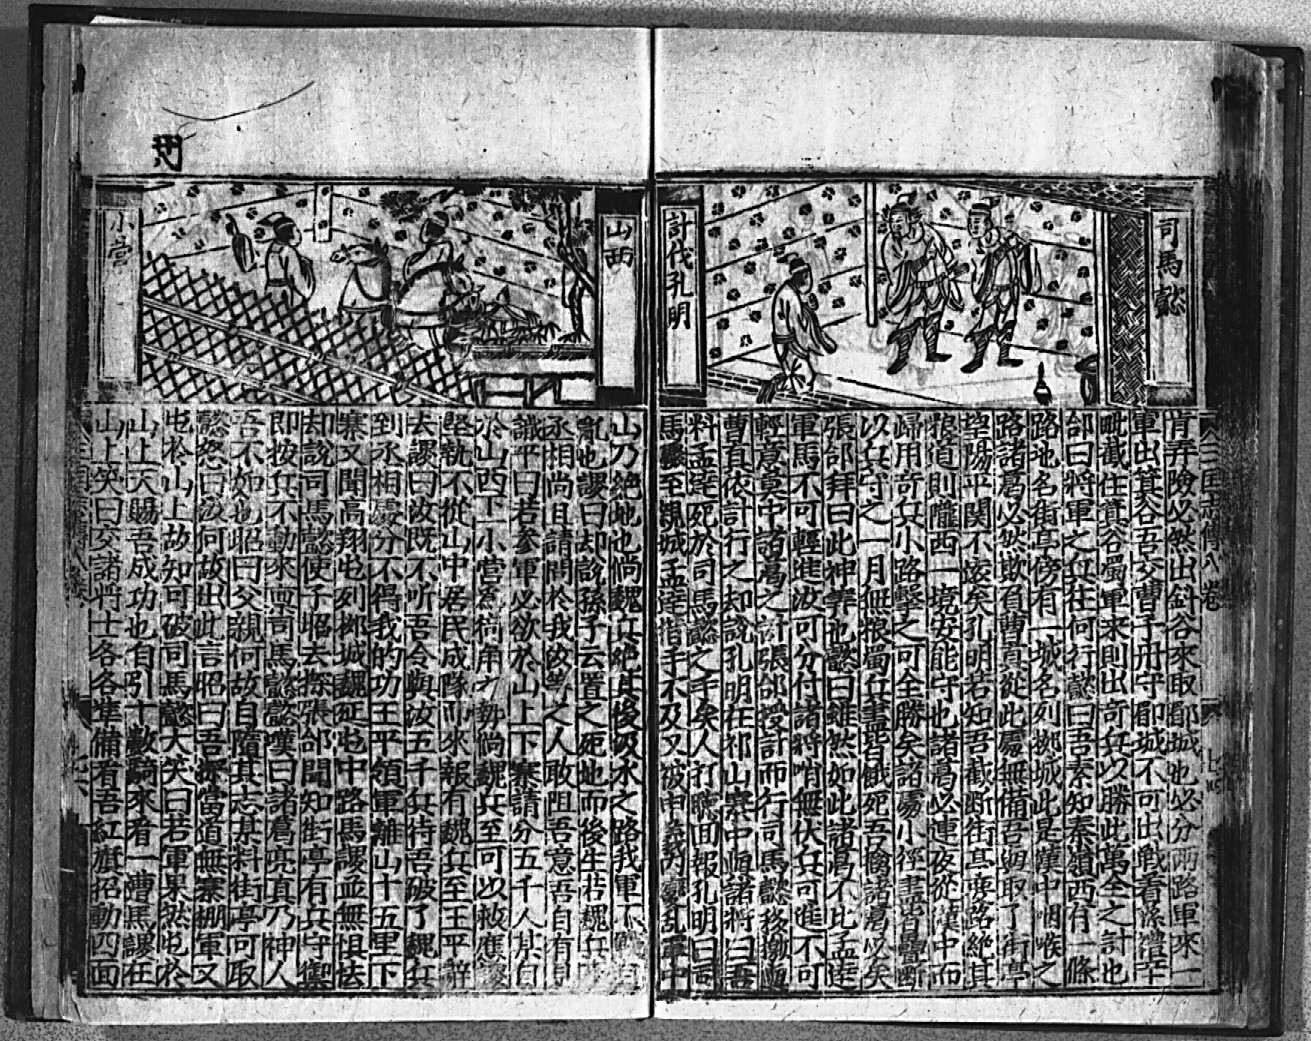 司馬懿
計伐孔明
三国志傳八卷
肯弄險必然出斜谷來取郿城也必分兩路軍來一
軍出箕谷吾父曹子丹守郿城不可出戰看孫禮辛
毗截住箕谷蜀軍來則出奇兵以勝此萬全之計也
郃曰將軍之兵往何行懿曰吾素知秦嶺西有一條
路地名街亭傍有一城名列柳城此是漢中咽喉之
路諸葛必然欺吾曹真從此處無備吾與取了街亭
望陽平關不遠矣孔明若知吾截斷街亭要路絕其
狼道則隴西一境安能守也諸葛必連夜從漢中而
歸用奇兵小路擊之可全勝矣諸處小徑盡皆壘斷
以兵守之一月無狼蜀兵盡皆餓死吾擒諸葛必矣
張郃拜曰此神筭也懿曰雖然如此諸葛不比孟達
軍馬不可輕進汝可分付諸將哨無伏兵可進不可
輕意莫中諸葛之計張郃授計而行司馬懿
曹真依計行之却說孔明在祁山寨中
料孟達死於司馬懿之手矣人打聽回報孔明曰司
馬驟至親城孟達措手不及又被申
山西
小營
山乃絕地也倘魏兵絕其後汲水之路我軍不
亂也謖曰却說孫子云置之死地而後生若魏兵
丞相尚且請問於我
識平曰若參軍必欲於山上下寨請分五千人某自
於山西下一小營為犄角之勢倘魏兵至可以救應謖
堅執不從山中居民成隊而來報有魏兵至王平辭
去謖曰汝既不听吾令與汝五千兵待吾破了魏兵
到丞相處分不得我的功王平領軍離山十五里下
寨又聞高翔屯列柳城魏延屯中路馬謖並無惧怯
却說司馬懿使子昭去探張郃聞知街亭有兵守禦
即按兵不動來稟司馬懿懿嘆曰諸葛亮真乃神人
吾不如也昭曰父親何故自隳其志某料街亭可取
懿怒曰汝何故出此言昭曰吾探當道無寨栅軍又
屯於山上故知可破司馬懿大笑曰若軍果然屯於
山上天賜吾成功也自引十數騎來看一遭馬謖在
山上笑曰交諸將士各各準備看吾紅旗招動四面